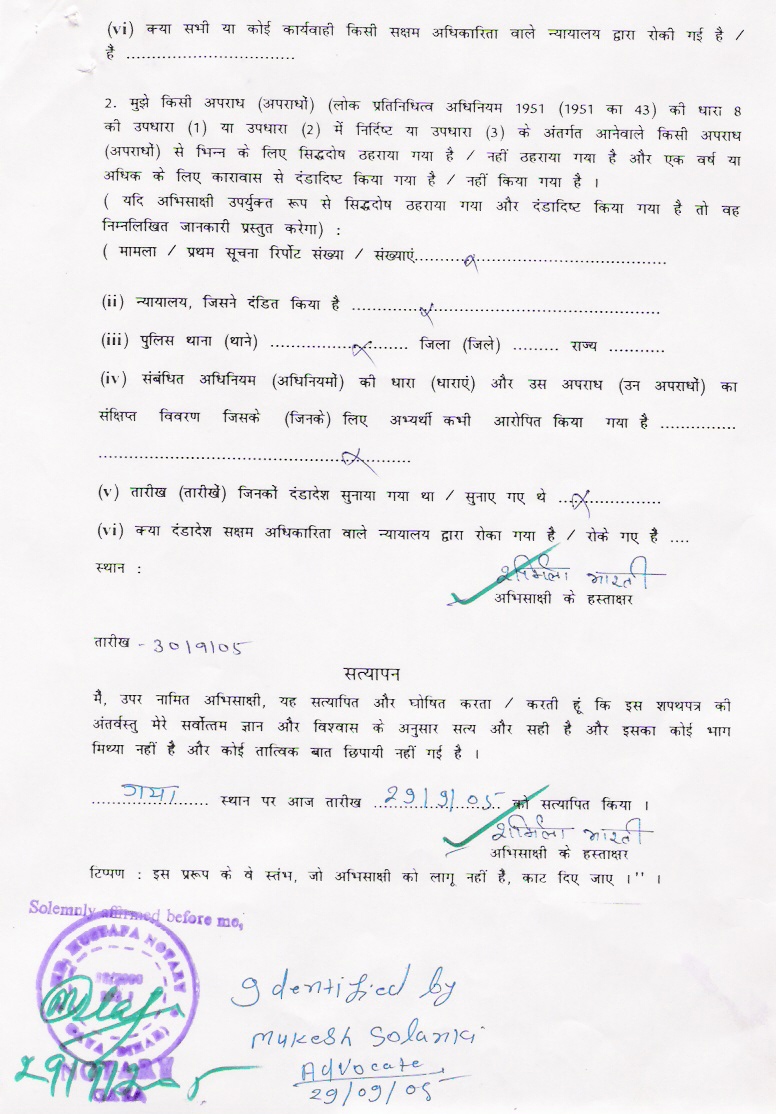 (vi) क्या सभी या कोई कार्यवाही किसी सक्षम अधिकारिता वाले न्यायालय द्वारा रोकी गई है /
हैं .................................
2. मुझे किसी अपराध (अपराधों) (लोक प्रतिनिधित्व अधिनियम 1951 (1951 का 43) की धारा 8
की उपधारा (1) या उपधारा (2) में निर्दिष्ट या उपधारा (3) के अंतर्गत आनेवाले किसी अपराध
(अपराधों) से भिन्न के लिए सिद्धदोष ठहराया गया है / नहीं ठहराया गया है और एक वर्ष या
अधिक के लिए कारावास से दंडादिष्ट किया गया है / नहीं किया गया है ।
( यदि अभिसाक्षी उपर्युक्त रूप से सिद्धदोष ठहराया गया और दंडादिष्ट किया गया है तो वह
निम्नलिखित जानकारी प्रस्तुत करेगा) :
( मामला / प्रथम सूचना रिर्पोट संख्या / संख्याएं..................................................
(ii) न्यायालय, जिसने दंडित किया है .............................................................
(iii) पुलिस थाना (थाने) ........................... जिला (जिले) ......... राज्य ...........
(iv) संबंधित अधिनियम (अधिनियमों) की धारा (धाराएं) और उस अपराध (उन अपराधों) का
संक्षिप्त विवरण जिसके (जिनके) लिए अभ्यर्थी कभी आरोपित किया गया है ...............
.............................................................
(v) तारीख (तारीखें) जिनकों दंडादेश सुनाया गया था / सुनाए गए थे ....................
(vi) क्या दंडादेश सक्षम अधिकारिता वाले न्यायालय द्वारा रोका गया है / रोके गए हैं ....
स्थान :
शर्मिला भारती
अभिसाक्षी के हस्ताक्षर
तारीख - 30/9/05
सत्यापन
मैं, उपर नामित अभिसाक्षी, यह सत्यापित और घोषित करता / करती हूं कि इस शपथपत्र की
अंतर्वस्तु मेरे सर्वोत्तम ज्ञान और विश्वास के अनुसार सत्य और सही है और इसका कोई भाग
मिथ्या नहीं है और कोई तात्विक बात छिपायी नहीं गई है ।
गया स्थान पर आज तारीख 29/9/05 को सत्यापित किया ।
शर्मिला भारती
अभिसाक्षी के हस्ताक्षर
टिप्पण : इस प्ररूप के वे स्तंभ, जो अभिसाक्षी को लागू नहीं है, काट दिए जाए ।'' ।
Solemnly affirmed before me,
MUSTAFA NOTARY
GAYA (BIHAR)
NOTARY
GAYA
Identified by
Mukesh Solanki
Advocate
29/09/05